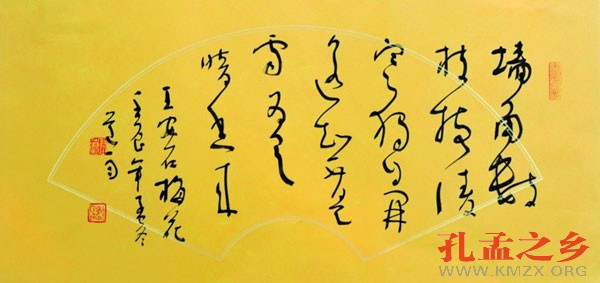 墙角數
枝梅凌
寒獨自開
遥知不是
雪為有
暗香來
王安石梅花
壬辰年孟冬
孔孟之乡
WWW.KMZX.ORG